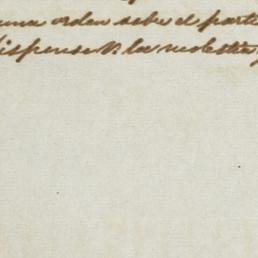 una orden sobre el parti
dispense V. la molestia,